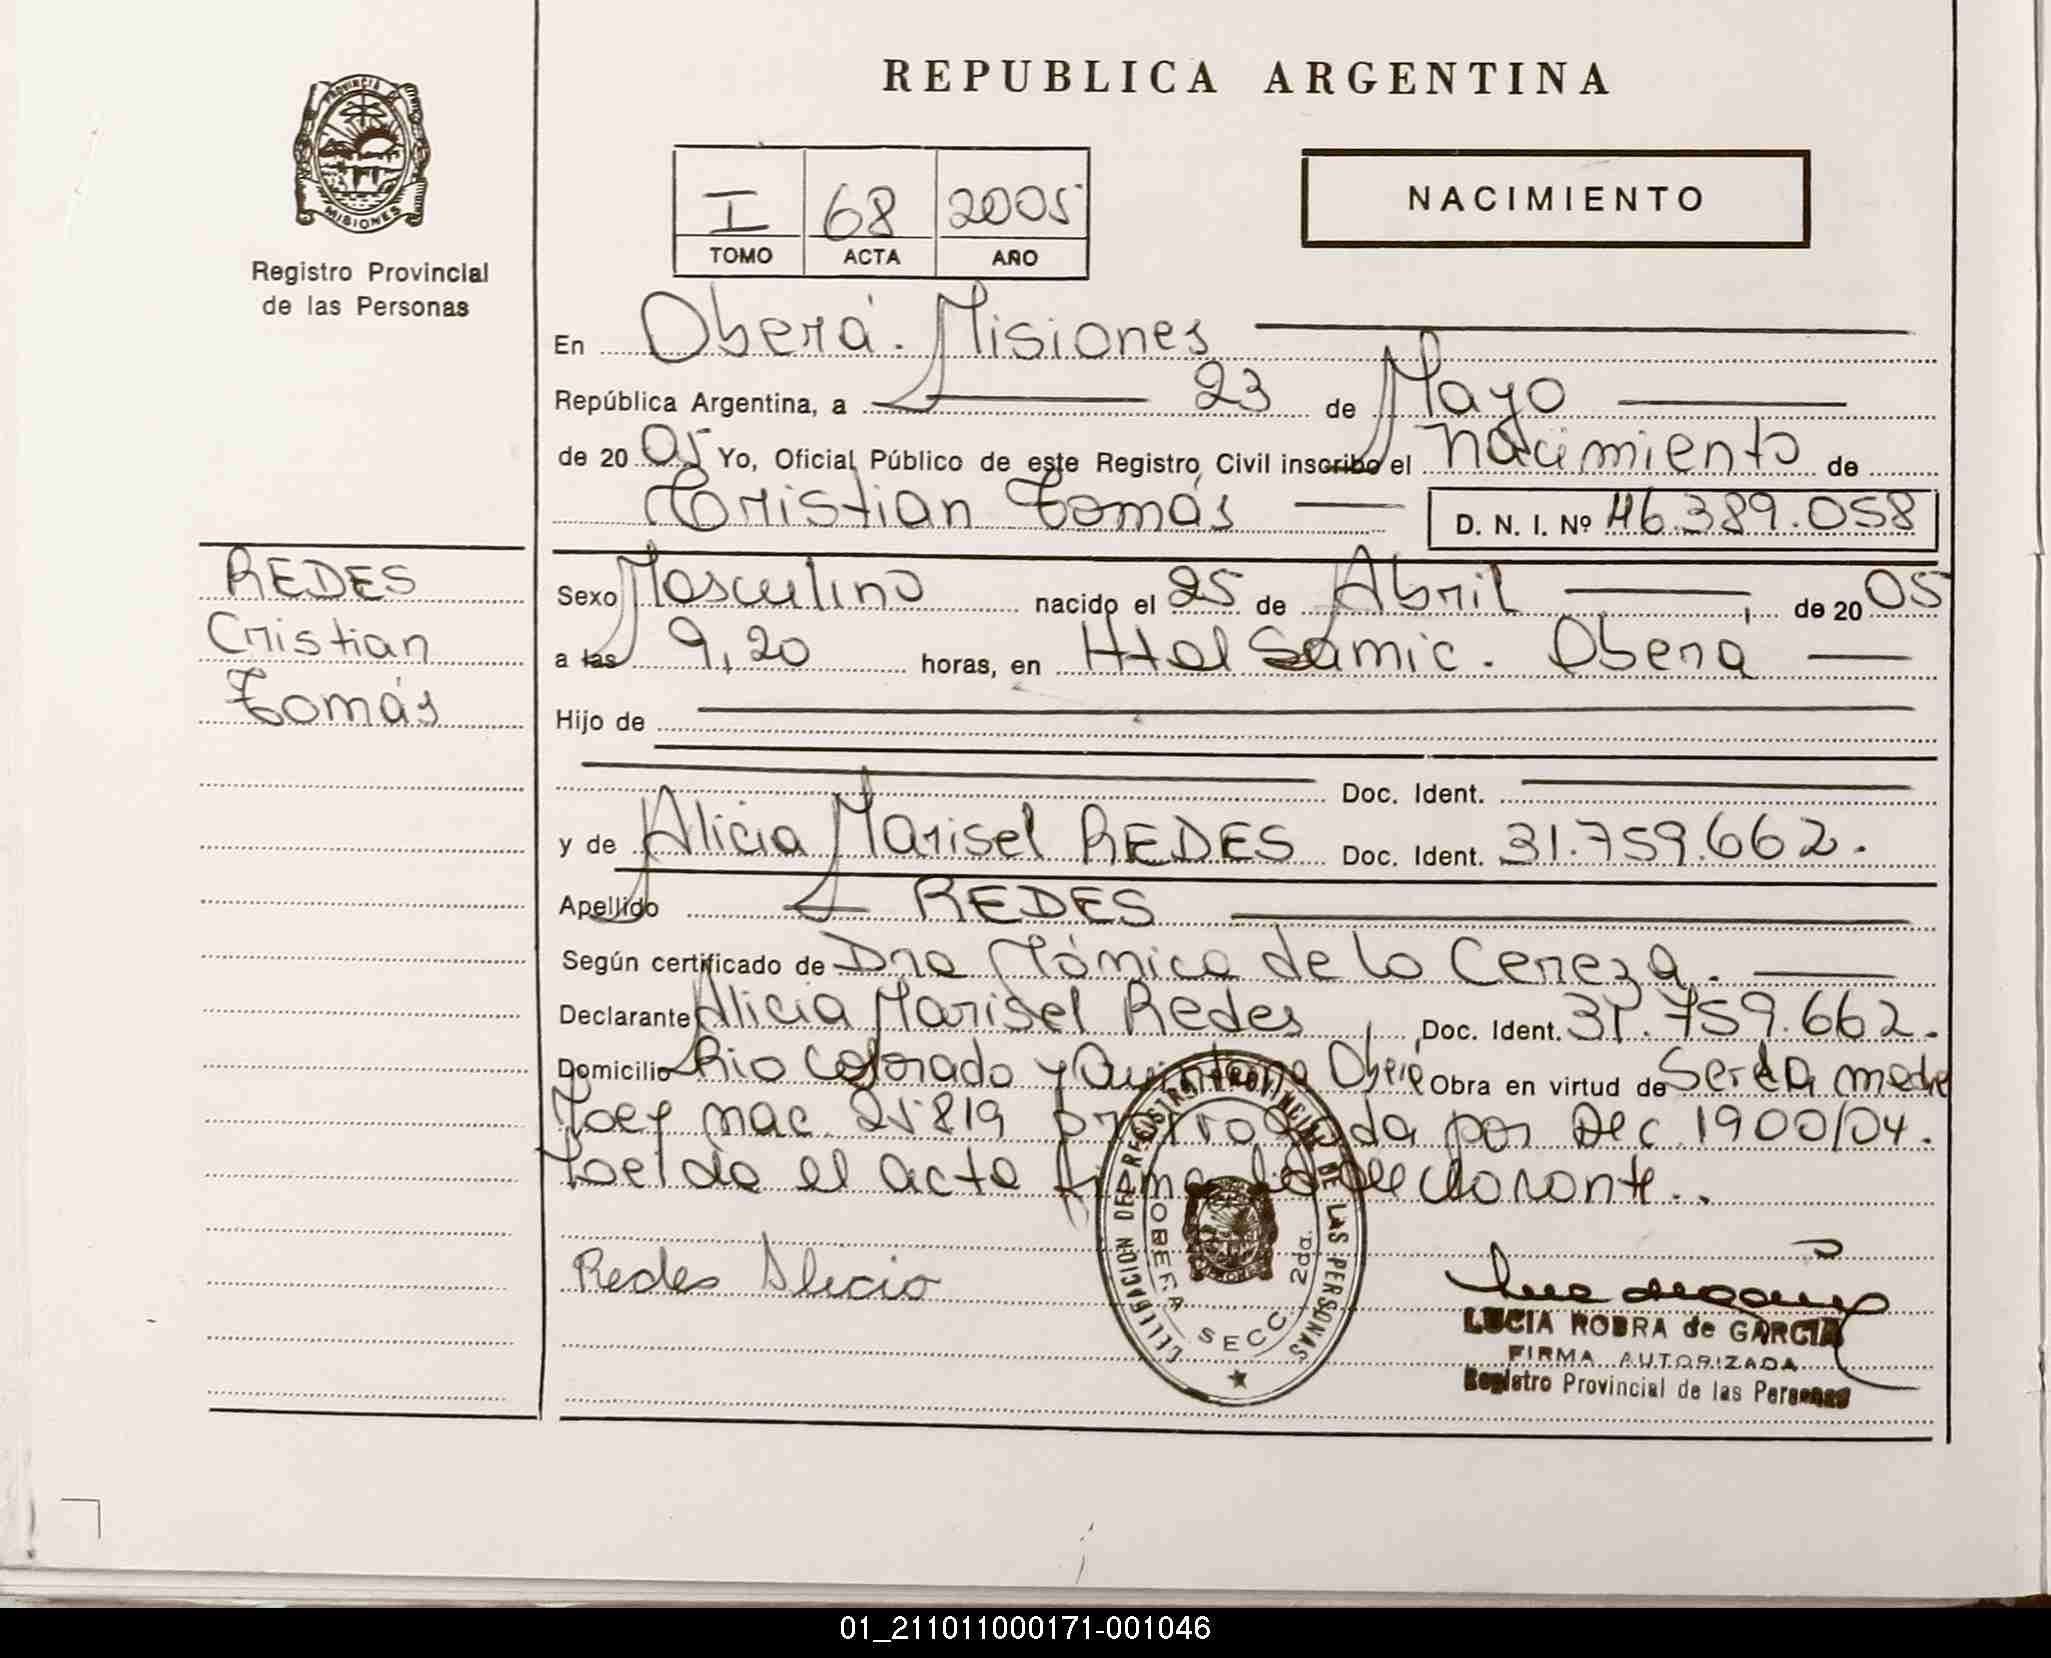 REPUBLICA ARGENTINA
PROVINCIA DE
MISIONES
Registro Provincial
de las Personas
I 68 2005
TOMO ACTA AÑO
NACIMIENTO
En Oberá. Misiones
República Argentina, a 23 de Mayo
de 2005 Yo, Oficial Público de este Registro Civil inscribo el nacimiento de
Cristian Tomás D. N. I. Nº 46.389.058
REDES
Cristian
Tomás
Sexo Masculino nacido el 25 de Abril de 2005
a las 9,20 horas, en Htal Samic. Oberá
Hijo de
Doc. Ident.
y de Alicia Marisel REDES Doc. Ident. 31.759.662.
Apellido REDES
Según certificado de Dra Mónica de la Cereza.
Declarante Alicia Marisel Redes Doc. Ident. 31.759.662.
Domicilio Rio Colorado y Oberá Obra en virtud de ser la madre
Ley nac. 25819 prorrogada por Dec. 1900/04.
Leida el acta firma la declarante..
Redes Alicia
CELEBRACION DEL REGISTRO PROVINCIAL DE LAS PERSONAS
OBERA SECC. 2da.
LUCIA ROBRA de GARCIA
FIRMA AUTORIZADA
Registro Provincial de las Personas
01_211011000171-001046